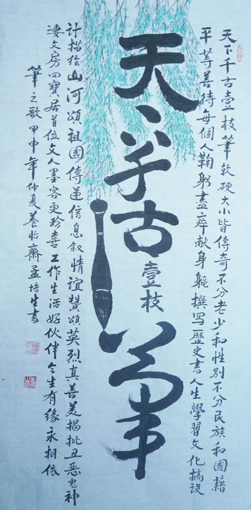 天下千古一枝筆軟硬大小皆傳奇不分老少和性別不分民族和國籍
平等善待每個人鞠躬盡瘁獻身軀撰寫歷史書人生學習文化搞設
天下千古壹枝筆
計描繪山河頌祖國傳遞信息叙情誼贊頌英烈真善美揭批丑惡鬼神
凄文房四寶居首位文人墨客更珍喜工作生活好伙伴今生有緣永相依
筆之歌甲申年仲夏養怡齋孟培生書